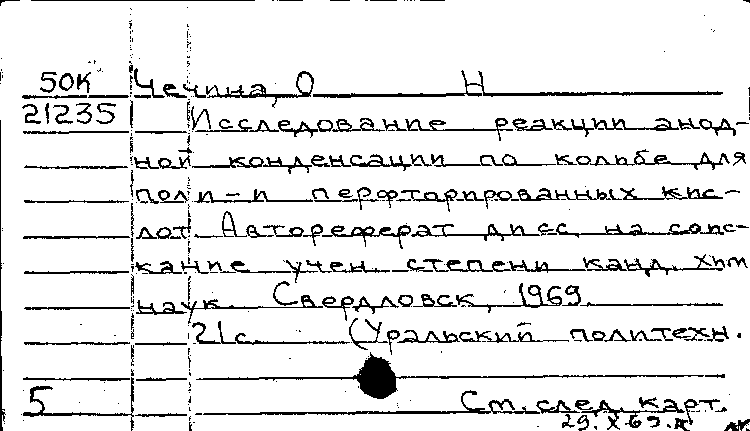 50К Чечина, О Н
21235 Исследование реакции анод-
ной конденсации по кольбе для
поли-и перфторированных кис-
лот. Автореферат дисс. на соис-
кание учен. степени канд. хим
наук. Свердловск, 1969.
21с. (Уральский политехн.
5 См. след. карт.
29.X.69.